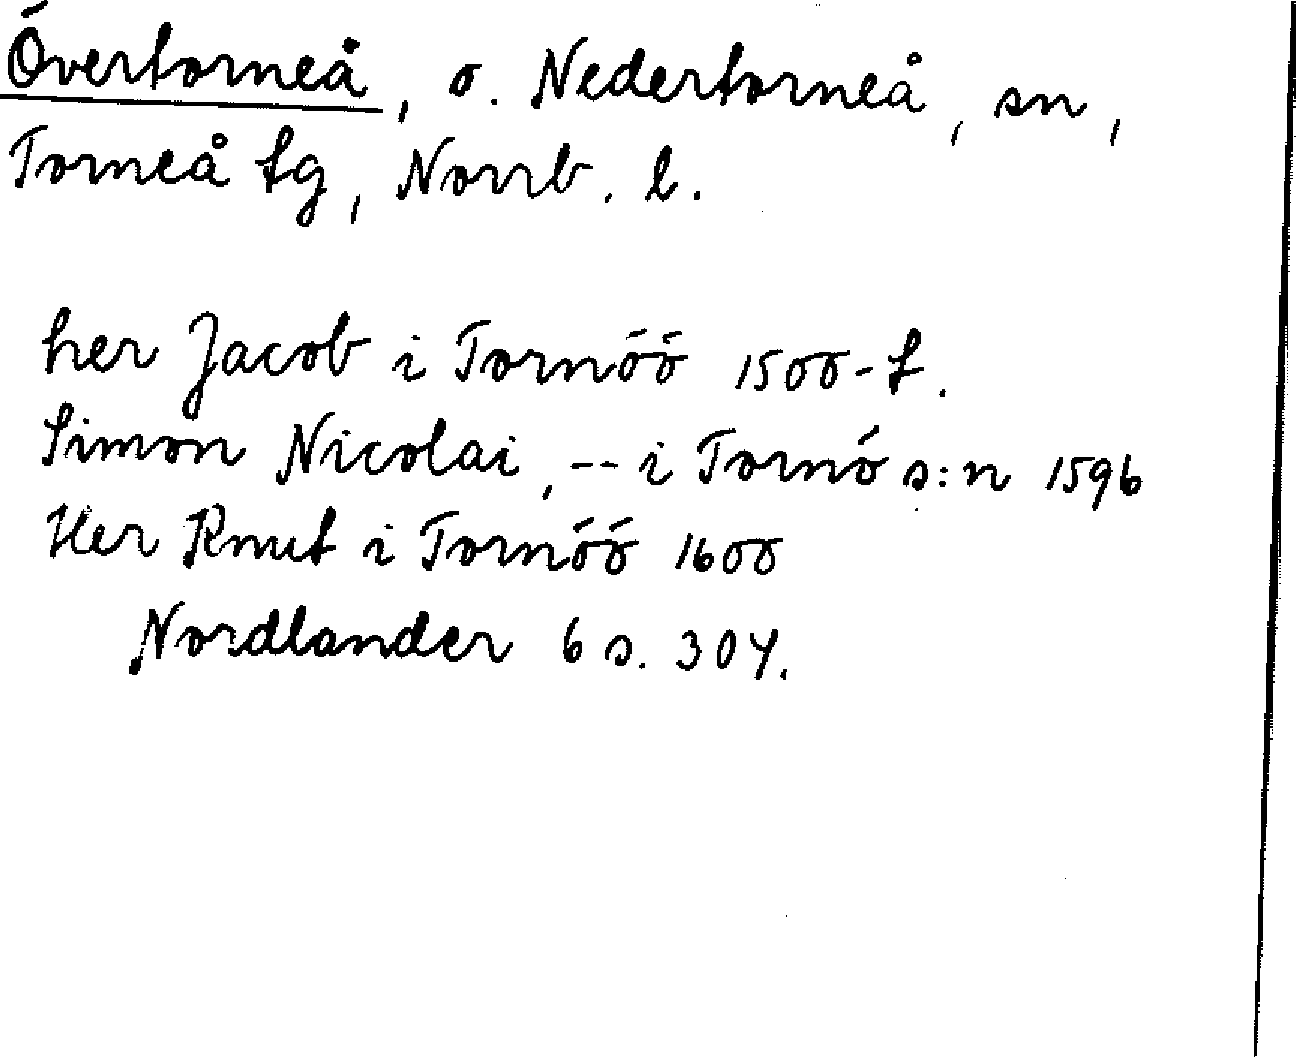 Övertorneå, o. Nedertorneå, sn,
Torneå tg, Norrb. l.
her Jacob i Tornöö 1500-t.
Simon Nicolai, -- i Tornö s:n 1596
Her Knut i Tornöö 1600
Nordlander 6 s. 304.